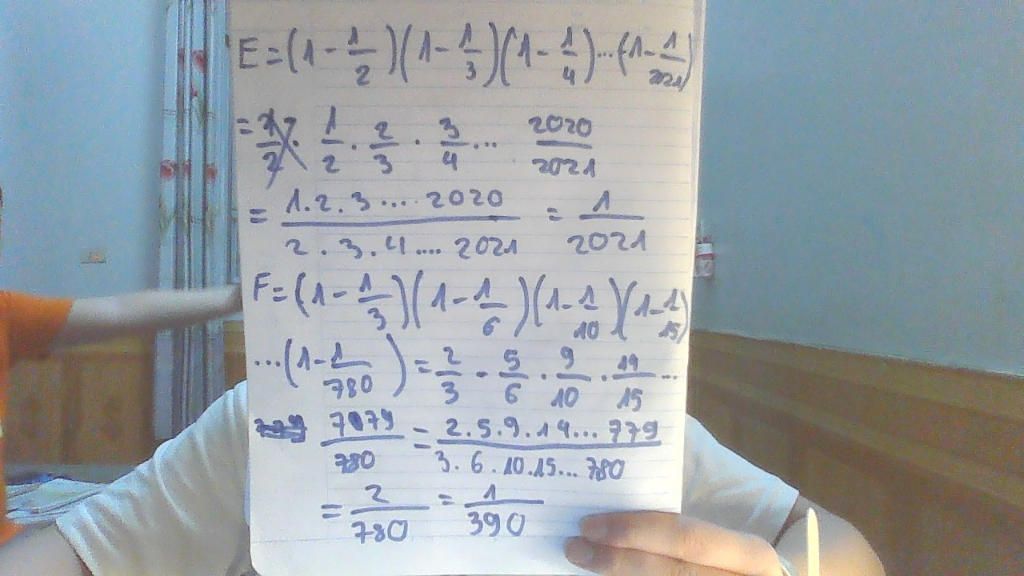 E = (1 - 1/2)(1 - 1/3)(1 - 1/4)...(1 - 1/2021)
= 1/2 · 2/3 · 3/4 ... 2020/2021
= 1.2.3....2020 / 2.3.4....2021 = 1/2021
F = (1 - 1/3)(1 - 1/6)(1 - 1/10)(1 - 1/15)
...(1 - 1/780) = 2/3 · 5/6 · 9/10 · 14/15 ...
779/780 = 2.5.9.14...779 / 3.6.10.15...780
= 2/780 = 1/390